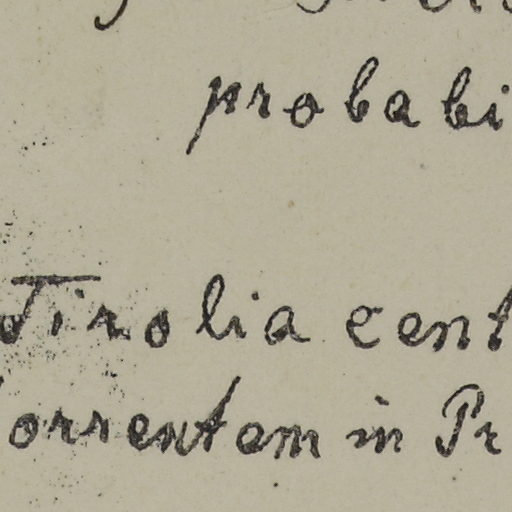 probabi
Tirolia cent
orrentem in Pr